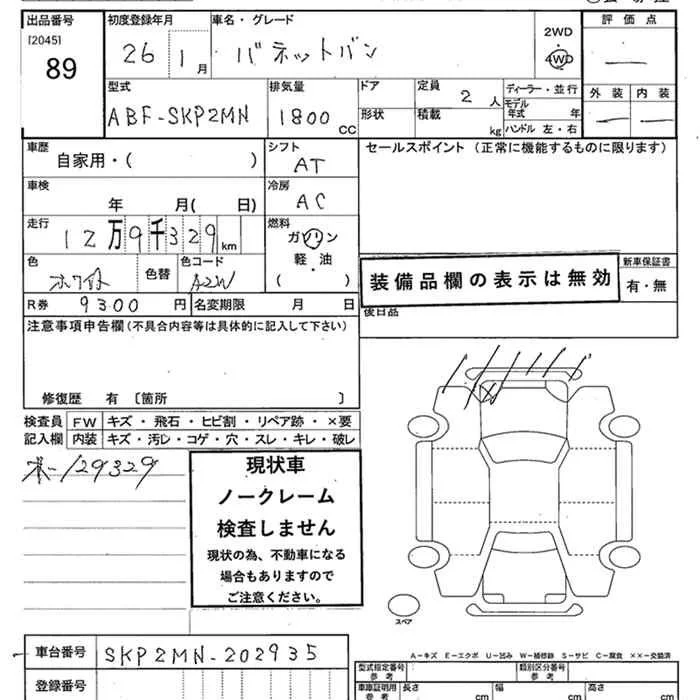 出品番号 初度登録年月 車名・グレード 評価点
[2045]
89
26 1 月 バネットバン
2WD
4WD
一
型式 排気量 ドア 定員 2 人 ディーラー・並行 外装 内装
モデル年式 年
ABF-SKP2MN 1800 CC 形状 積載 kg ハンドル 左・右 一 一
車歴 シフト セールスポイント (正常に機能するものに限ります)
自家用・( ) AT
車検 冷房
年 月( 日) AC
走行 燃料
12万9千329km ガソリン
軽・油
( ・ )
色 色替 色コード
ホワイト A2W
装備品欄の表示は無効
新車保証書
有・無
R券 9300 円 名変期限 月 日
後日品
注意事項申告欄 (不具合内容等は具体的に記入して下さい)
修復歴 有 〔箇所 〕
検査員 FW キズ・飛石・ヒビ割・リペア跡・×要
記入欄 内装 キズ・汚レ・コゲ・穴・スレ・キレ・破レ
129329
現状車
ノークレーム
検査しません
現状の為、不動車になる
場合もありますので
ご注意ください。
スペア
A-キズ E-エクボ U-凹み W-補修跡 S-サビ C-腐食 ××-交換済
車台番号 SKP2MN-202935
登録番号
型式指定番号 参考 類別区分番号 参考
車庫証明用 参考 長さ cm 幅 cm 高さ cm